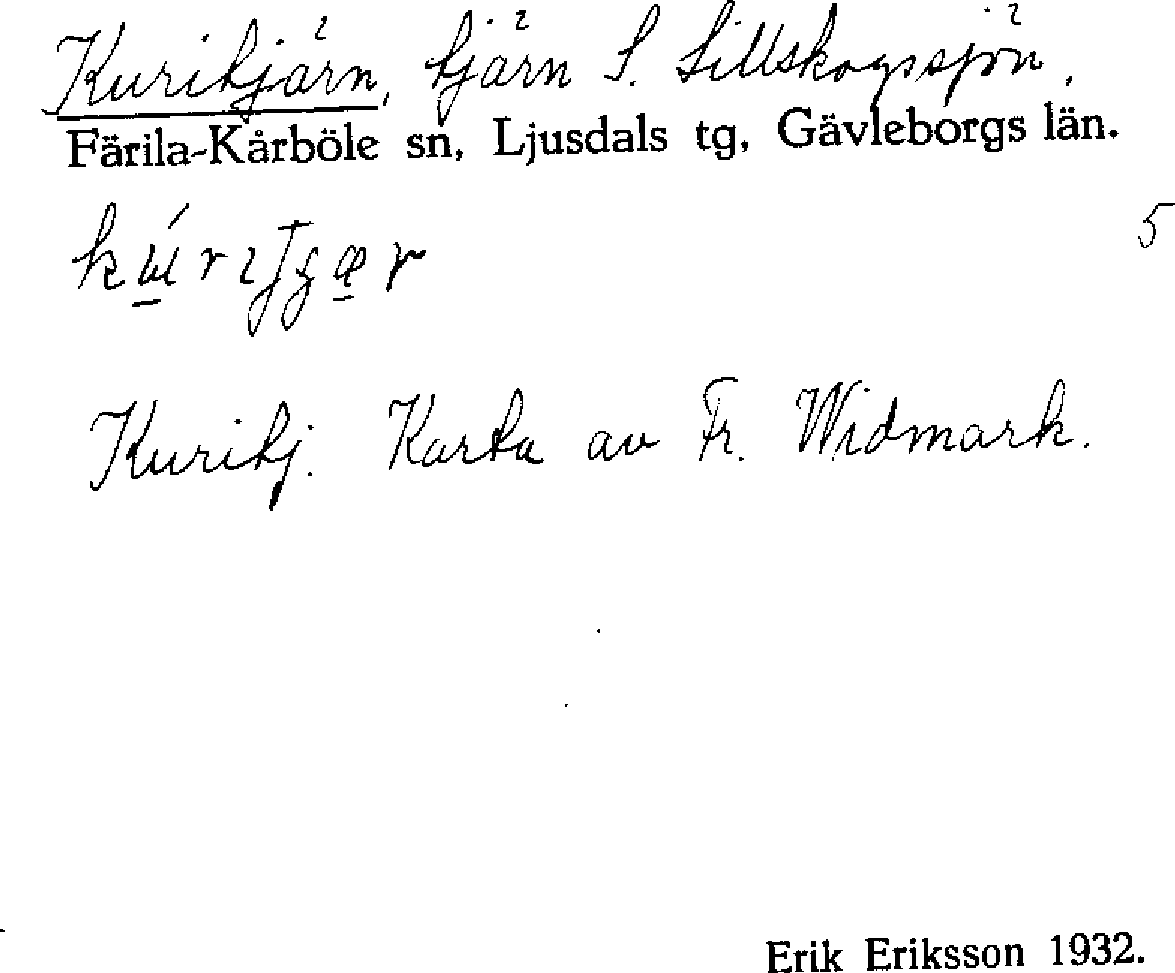 Kuritjärn, tjärn S. Lillskogssjön,
Färila-Kårböle sn, Ljusdals tg, Gävleborgs län.
5
Kuritj. Karta av Fr. Widmark.
Erik Eriksson 1932.